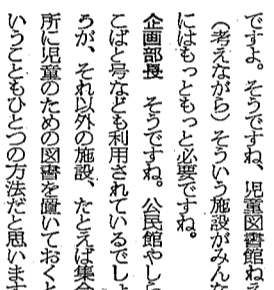 ですよ。そうですね、児童図書館ねえ
（考えながら）そういう施設がみんな
にはもっともっと必要ですね。
企画部長　そうですね。公民館やしら
こばと号なども利用されているでしょ
うが、それ以外の施設、たとえば集会
所に児童のための図書を置いておくと
いうこともひとつの方法だと思います